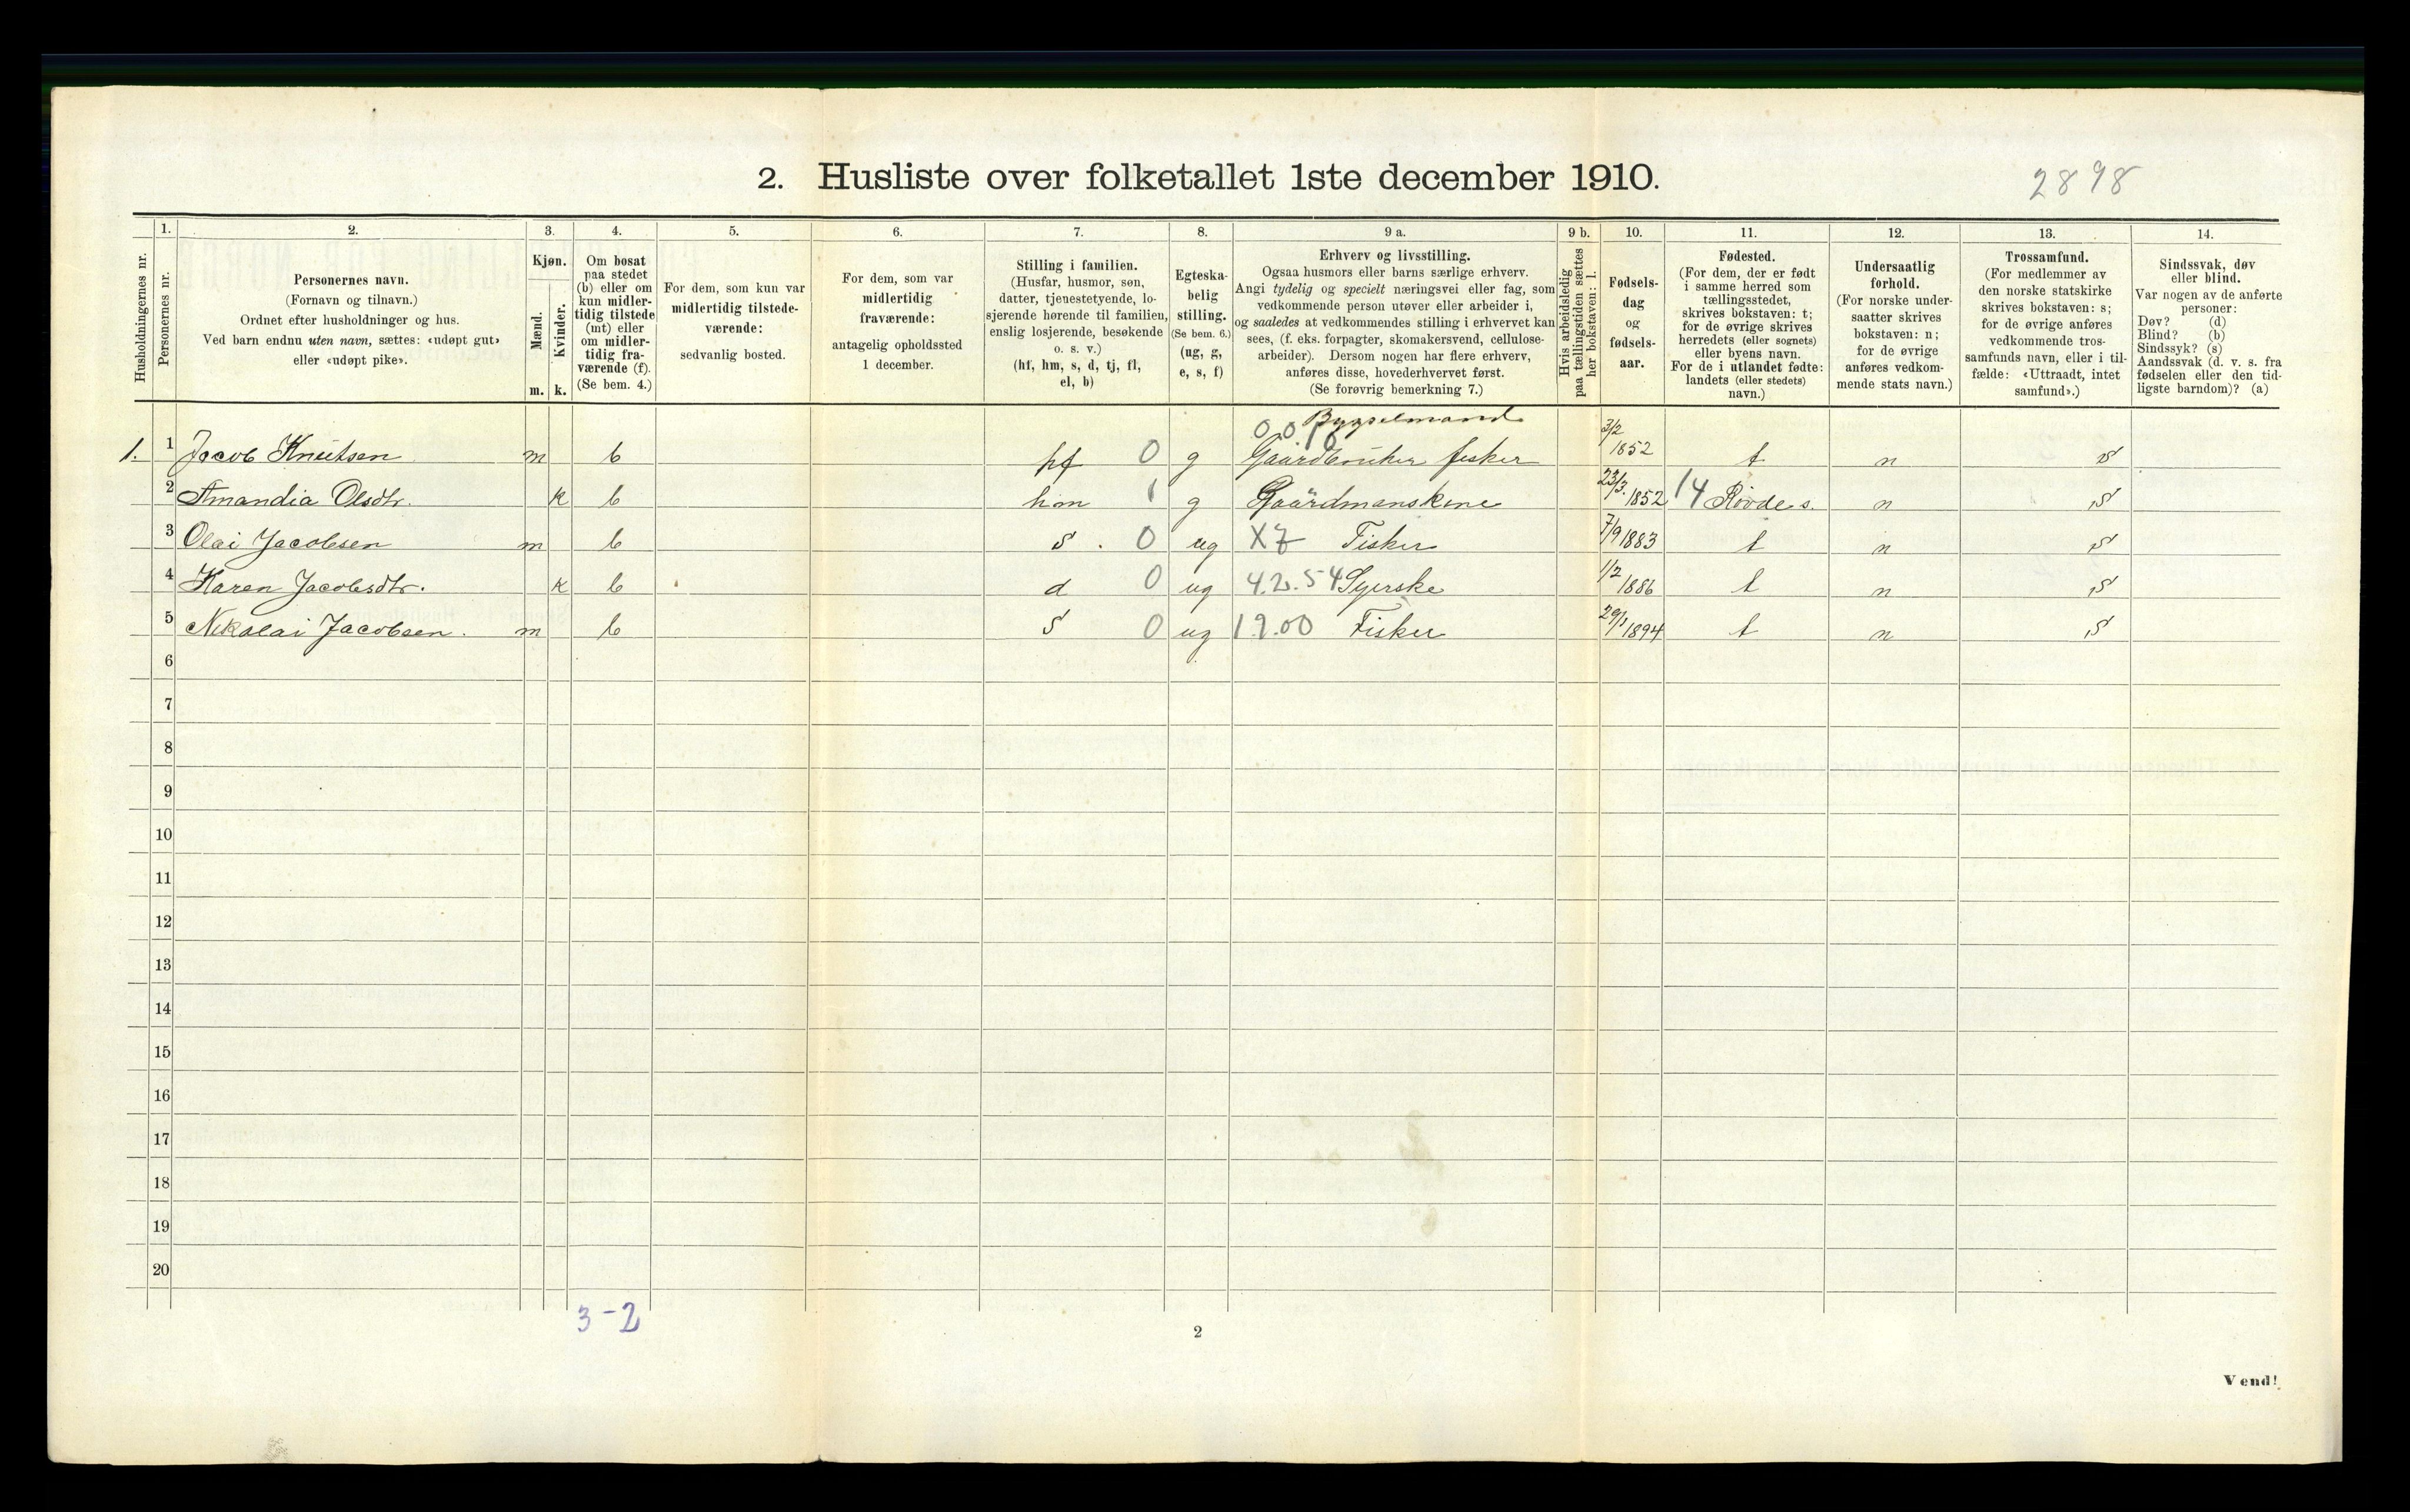 2. Husliste over folketallet 1ste december 1910.
2898
Husholdningernes nr.
1. Personernes nr.
2. Personernes navn.
(Fornavn og tilnavn.)
Ordnet efter husholdninger og hus.
Ved barn endnu uten navn, sættes: «udøpt gut»
eller «udøpt pike».
3. Kjøn.
Mænd. m.
Kvinder. k.
4. Om bosat
paa stedet
(b) eller om
kun midler-
tidig tilstede
(mt) eller
om midler-
tidig fra-
værende (f).
(Se bem. 4.)
5. For dem, som kun var
midlertidig tilstede-
værende:
sedvanlig bosted.
6. For dem, som var
midlertidig
fraværende:
antagelig opholdssted
1 december.
7. Stilling i familien.
(Husfar, husmor, søn,
datter, tjenestetyende, lo-
sjerende hørende til familien,
enslig losjerende, besøkende
o. s. v.)
(hf, hm, s, d, tj, fl,
el, b)
8. Egteska-
belig
stilling.
(Se bem. 6.)
(ug, g,
e, s, f)
9 a. Erhverv og livsstilling.
Ogsaa husmors eller barns særlige erhverv.
Angi tydelig og specielt næringsvei eller fag, som
vedkommende person utøver eller arbeider i,
og saaledes at vedkommendes stilling i erhvervet kan
sees, (f. eks. forpagter, skomakersvend, cellulose-
arbeider). Dersom nogen har flere erhverv,
anføres disse, hovederhvervet først.
(Se forøvrig bemerkning 7.)
9 b. Hvis arbeidsledig
paa tællingstiden sættes
her bokstaven: l.
10. Fødsels-
dag
og
fødsels-
aar.
11. Fødested.
(For dem, der er født
i samme herred som
tællingsstedet,
skrives bokstaven: t;
for de øvrige skrives
herredets (eller sognets)
eller byens navn.
For de i utlandet fødte:
landets (eller stedets)
navn.)
12. Undersaatlig
forhold.
(For norske under-
saatter skrives
bokstaven: n;
for de øvrige
anføres vedkom-
mende stats navn.)
13. Trossamfund.
(For medlemmer av
den norske statskirke
skrives bokstaven: s;
for de øvrige anføres
vedkommende tros-
samfunds navn, eller i til-
fælde: «Uttraadt, intet
samfund».)
14. Sindssvak, døv
eller blind.
Var nogen av de anførte
personer:
Døv? (d)
Blind? (b)
Sindssyk? (s)
Aandssvak (d. v. s. fra
fødselen eller den tid-
ligste barndom)? (a)
Bygselmand
1. 1 Jacob Knutsen m b hf 0 g Gaardbruker fisker 3/2 1852 t n s
2 Amandia Olsdtr. k b hm 1 g Gaardmanskone 23/3 1852 14 Rovde s. n s
3 Olai Jacobsen m b s. 0 ug X7 Fisker 7/9 1883 t n s
4 Karen Jacobsdtr. k b d 0 ug 4.2.54 Syerske 1/2 1886 t n s
5 Nikolai Jacobsen. m b s 0 ug 19.00 Fisker 29/1 1894 t n s
6
7
8
9
10
11
12
13
14
15
16
17
18
19
20
3-2
2
Vend!